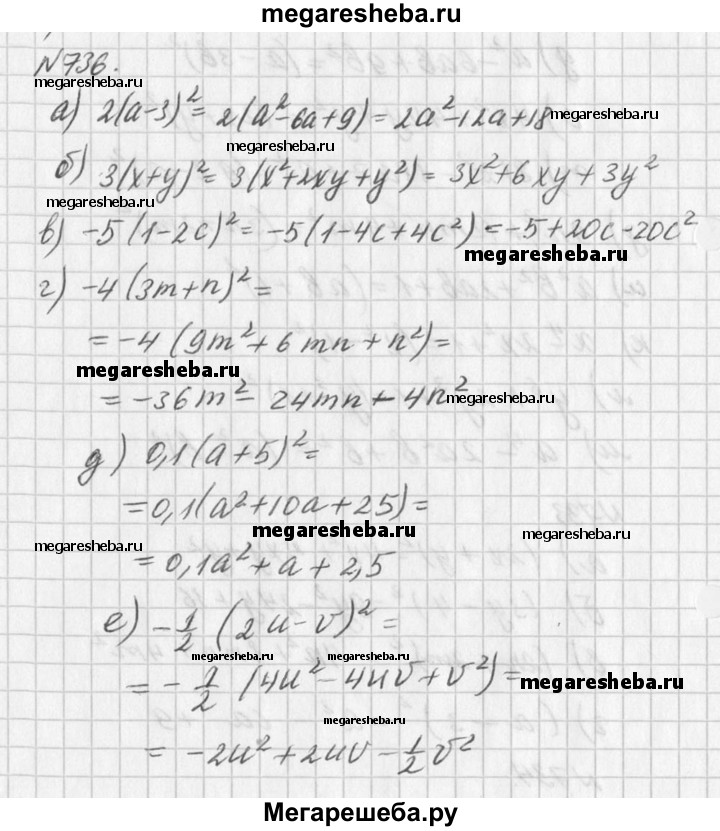 megaresheba.ru
№736.
megaresheba.ru
а) 2(a-3)²= 2(a²-6a+9)=2a²-12a+18 megaresheba.ru
megaresheba.ru
б) 3(x+y)²= 3(x²+2xy+y²)= 3x²+6xy+3y²
megaresheba.ru
в) -5(1-2c)²= -5(1-4c+4c²)=-5+20c-20c²
megaresheba.ru
г) -4(3m+n)²=
= -4(9m²+6mn+n²)=
megaresheba.ru
= -36m²- 24mn-4n² megaresheba.ru
megaresheba.ru
д) 0,1(a+5)²=
=0,1(a²+10a+25)=
megaresheba.ru megaresheba.ru
megaresheba.ru
=0,1a²+a+2,5
megaresheba.ru
е) -1/2 (2u-v)²=
megaresheba.ru megaresheba.ru
= -1/2 (4u²-4uv+v²)= megaresheba.ru
megaresheba.ru
= -2u²+2uv-1/2v²
megaresheba.ru
Мегарешеба.ру